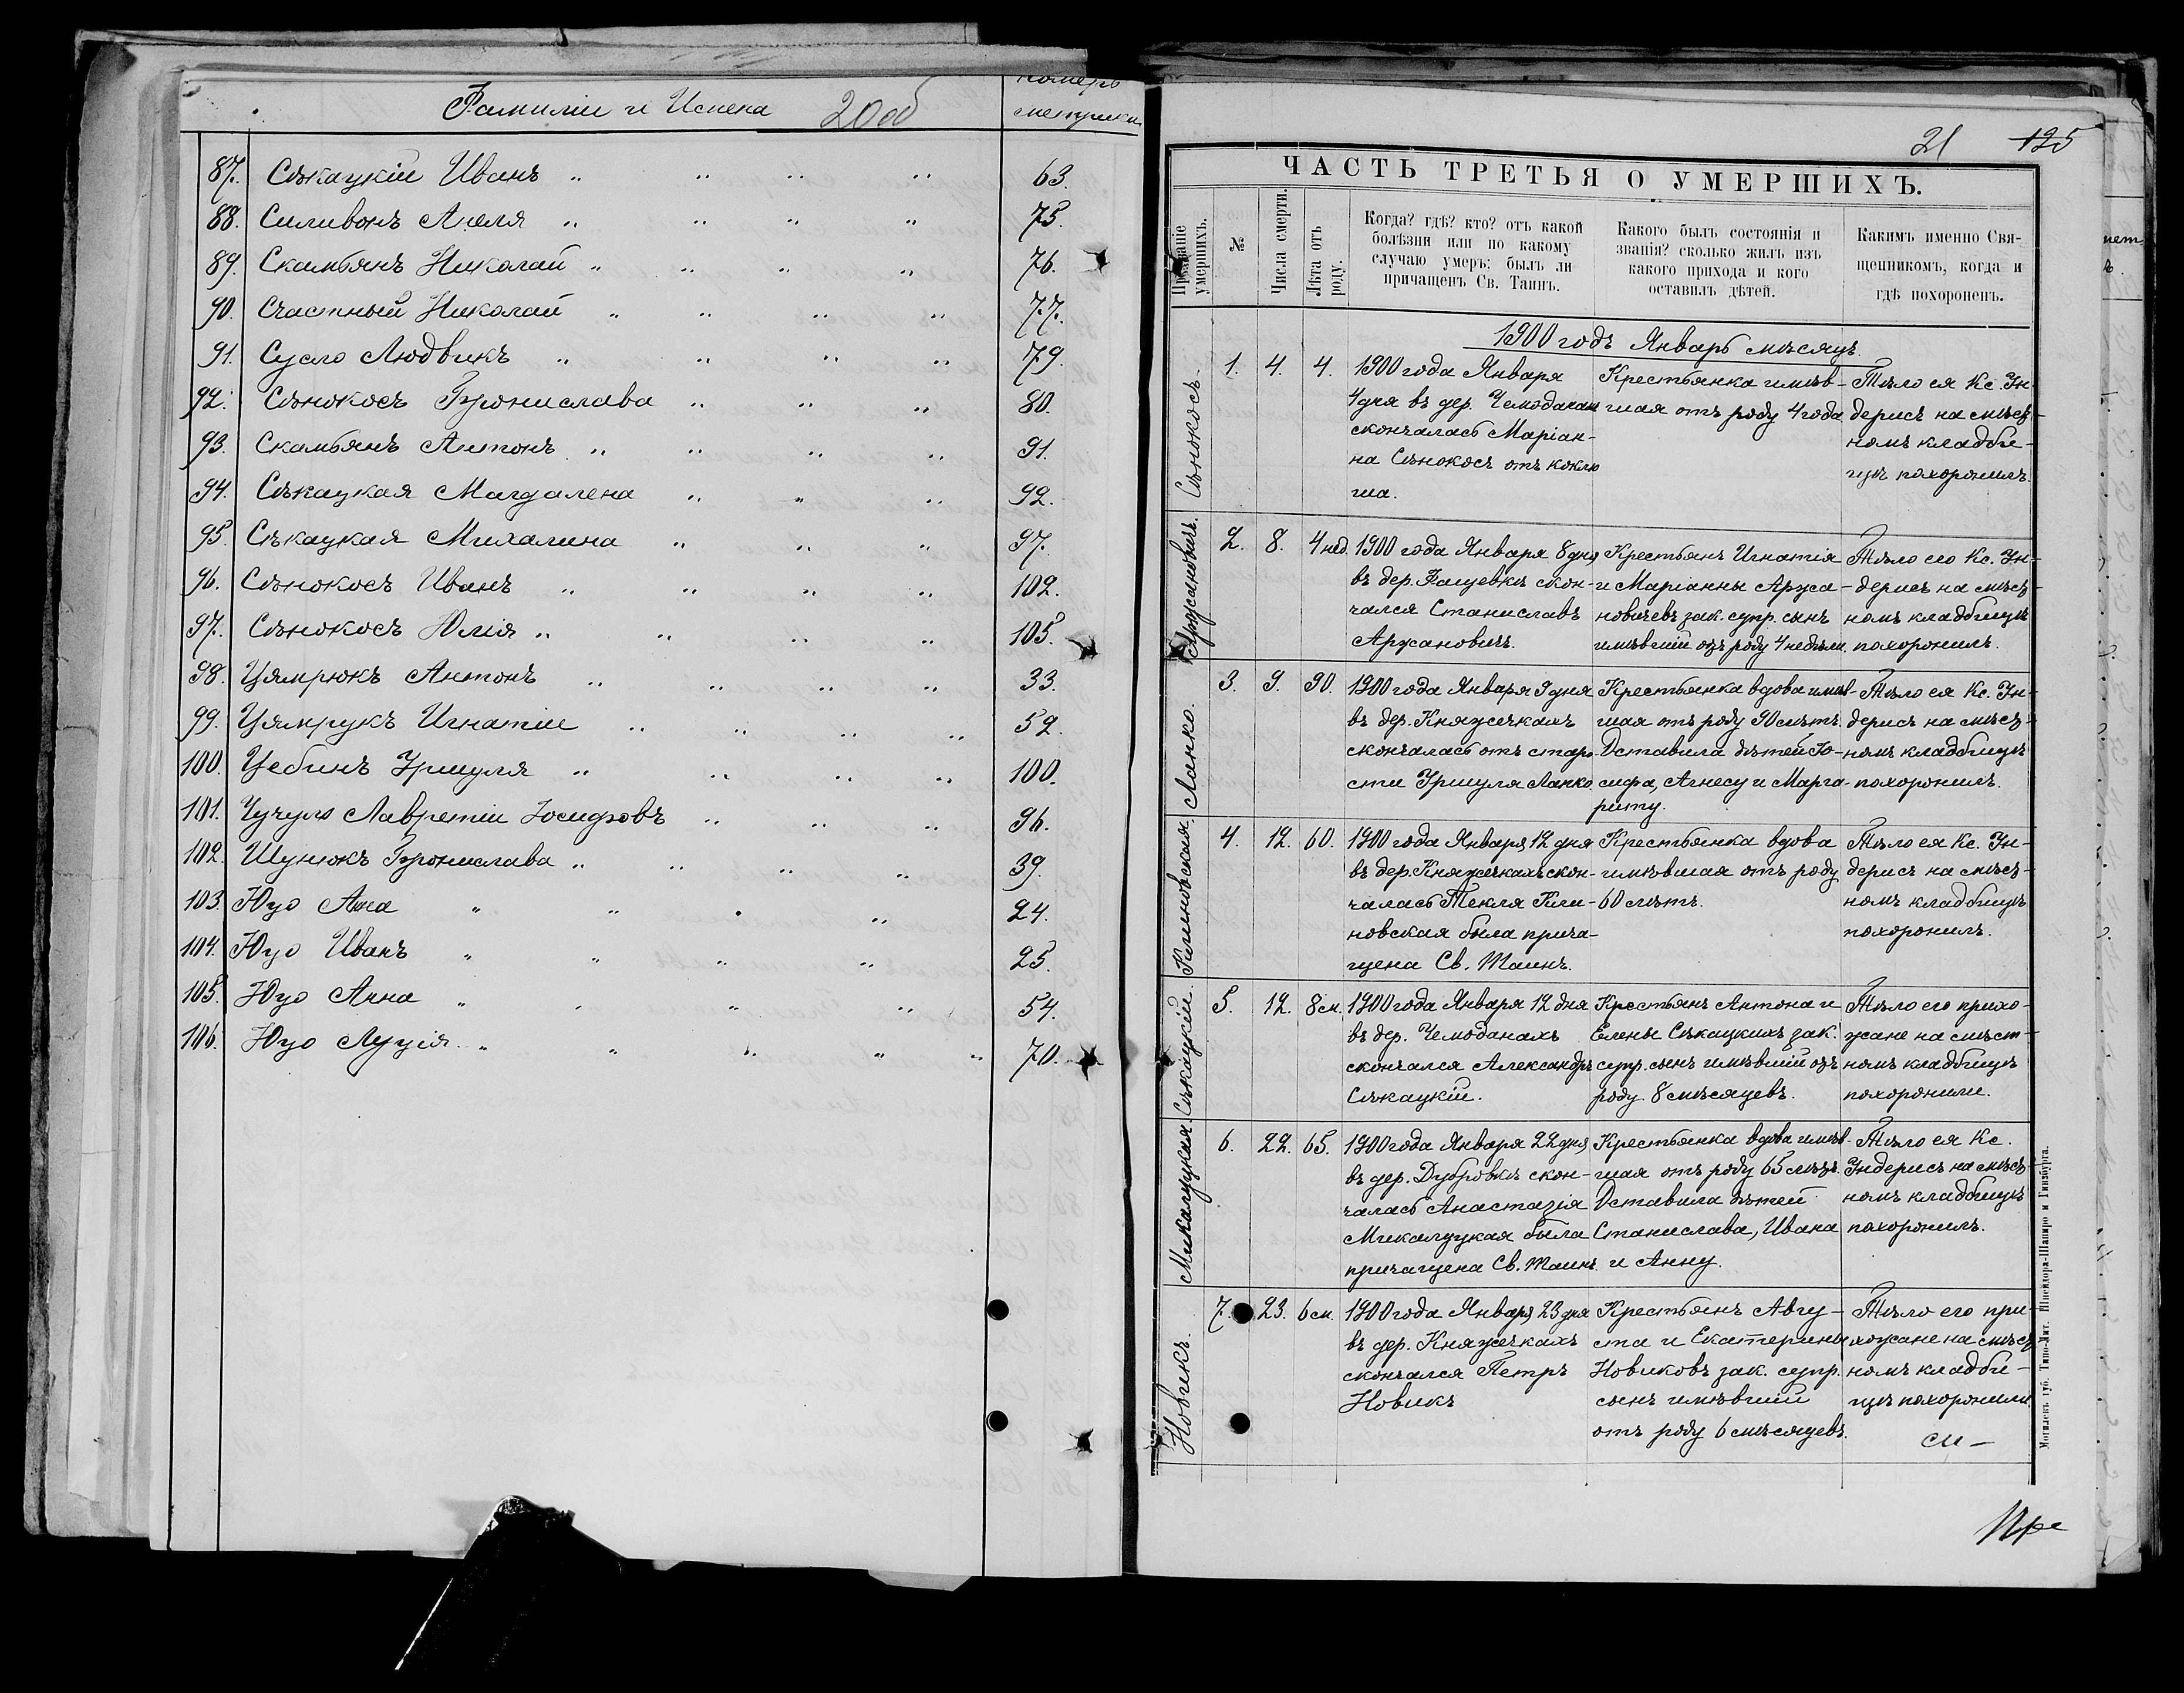 Фамиліи и Имена 20об
номеръ
метрики
87. Сѣкацкій Иванъ „ „ „ „ 63.
88. Силивонъ Анеля „ „ „ „ 75.
89. Скамбянъ Николай „ „ „ „ 76.
90. Счастный Николай „ „ „ „ 77.
91. Сусло Людвикъ „ „ „ „ 79.
92. Сѣнокосъ Бронислава „ „ „ 80.
93. Скамбянъ Антонъ „ „ „ „ 91.
94. Сѣкацкая Магдалена „ „ „ 92.
95. Сѣкацкая Михалина „ „ „ 97.
96. Сѣнокосъ Иванъ „ „ „ „ 102.
97. Сѣнокосъ Юлія „ „ „ „ 105.
98. Цямрюкъ Антонъ „ „ „ „ 33.
99. Цямрукъ Игнатій „ „ „ „ 52.
100. Цебинъ Уршуля „ „ „ „ 100.
101. Чучуло Лаврентій Іосифовъ „ „ „ 96.
102. Шунюкъ Бронислава „ „ „ „ 39.
103. Юцо Анна „ „ „ „ 24.
104. Юцо Иванъ „ „ „ „ 25.
105. Юцо Анна „ „ „ „ 54.
106. Юцо Луція „ „ „ „ „ 70.
21 125
ЧАСТЬ ТРЕТЬЯ О УМЕРШИХЪ.
Прозваніе умершихъ.
№
Числа смерти.
Лѣта отъ роду.
Когда? гдѣ? кто? отъ какой
болѣзни или по какому
случаю умеръ: былъ ли
причащенъ Св. Таинъ.
Какого былъ состоянія и
званія? сколько жилъ изъ
какого прихода и кого
оставилъ дѣтей.
Какимъ именно Свя-
щенникомъ, когда и
гдѣ похороненъ.
1900 годъ Январь мѣсяцъ.
Сѣнокосъ.
1. 4. 4.
1900 года Января
4 дня въ дер. Чемоданахъ
скончалась Маріан-
на Сѣнокосъ отъ коклю
ша.
Крестьянка имѣв-
шая отъ роду 4 года
Тѣло ея Кс. Ин-
дерисъ на мѣст-
номъ кладби-
щѣ похоронилъ.
Аржановичъ.
2. 8. 4 нед.
1900 года Января 8 дня
въ дер. Фащевкѣ скон-
чался Станиславъ
Аржановичъ.
Крестьянъ Игнатія
и Маріанны Аржа-
новичевъ зак. супр. сынъ
имѣвшій отъ роду 4 недѣли.
Тѣло его Кс. Ин-
дерисъ на мѣст-
номъ кладбищѣ
похоронилъ.
Лапко.
3. 9. 90.
1900 года Января 9 дня
въ дер. Княжечкахъ
скончалась отъ старо-
сти Уршуля Лапко
Крестьянка вдова имѣв-
шая отъ роду 90 лѣтъ.
Оставила дѣтей Іо-
сифа, Агнесу и Марга-
риту.
Тѣло ея Кс. Ин-
дерисъ на мѣст-
номъ кладбищѣ
похоронилъ.
Климовская.
4. 12. 60.
1900 года Января 12 дня
въ дер. Княжечкахъ скон-
чалась Текля Кли-
новская была прича-
щена Св. Таинъ.
Крестьянка вдова
имѣвшая отъ роду
60 лѣтъ.
Тѣло ея Кс. Ин-
дерисъ на мѣст-
номъ кладбищѣ
похоронилъ.
Сѣкацкій.
5. 12. 8 м.
1900 года Января 12 дня
въ дер. Чемоданахъ
скончался Александръ
Сѣкацкій.
Крестьянъ Антона и
Елены Сѣкацкихъ зак.
супр. сынъ имѣвшій отъ
роду 8 мѣсяцевъ.
Тѣло его прихо-
жане на мѣст-
номъ кладбищѣ
похоронили.
Микалуцкая.
6. 22. 65.
1900 года Января 22 дня
въ дер. Дубровкѣ скон-
чалась Анастазія
Микалуцкая была
причащена Св. Таинъ.
Крестьянка вдова имѣв-
шая отъ роду 65 лѣтъ.
Оставила дѣтей
Станислава, Ивана
и Анну.
Тѣло ея Кс.
Индерисъ на мѣст-
номъ кладбищѣ
похоронилъ.
Новикъ.
7. 23. 6 м.
1900 года Января 23 дня
въ дер. Княжечкахъ
скончался Петръ
Новикъ
Крестьянъ Авгу-
ста и Екатерины
Новиковъ зак. супр.
сынъ имѣвшій
отъ роду 6 мѣсяцевъ.
Тѣло его при-
хожане на мѣст-
номъ кладби-
щѣ похоронили
Могилевъ губ. Типо-Лит. Шнейдора-Шапиро и Гинзбурга.